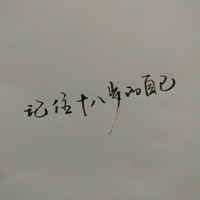 记住十八岁的自己